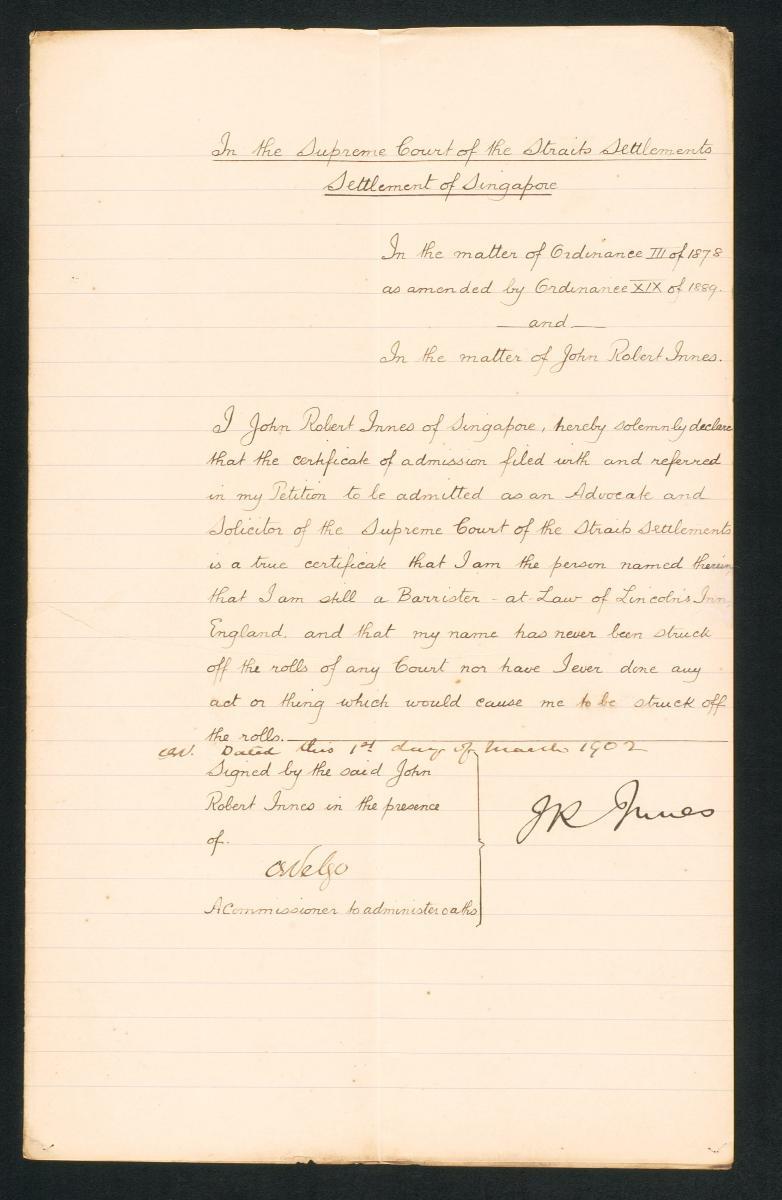 In the Supreme Court of the Straits Settlements
Settlement of Singapore
In the matter of Ordinance III of 1878
as amended by Ordinance XIX of 1889.
— and —
In the matter of John Robert Innes.
I John Robert Innes of Singapore, hereby solemnly declare
that the certificate of admission filed with and referred
in my Petition to be admitted as an Advocate and
Solicitor of the Supreme Court of the Straits Settlements
is a true certificate that I am the person named therein
that I am still a Barrister-at-Law of Lincoln's Inn
England, and that my name has never been struck
off the rolls of any Court nor have I ever done any
act or thing which would cause me to be struck off
the rolls.
Dated this 1st day of March 1902
Signed by the said John
Robert Innes in the presence
of.
JR Innes
A Commissioner to administer oaths